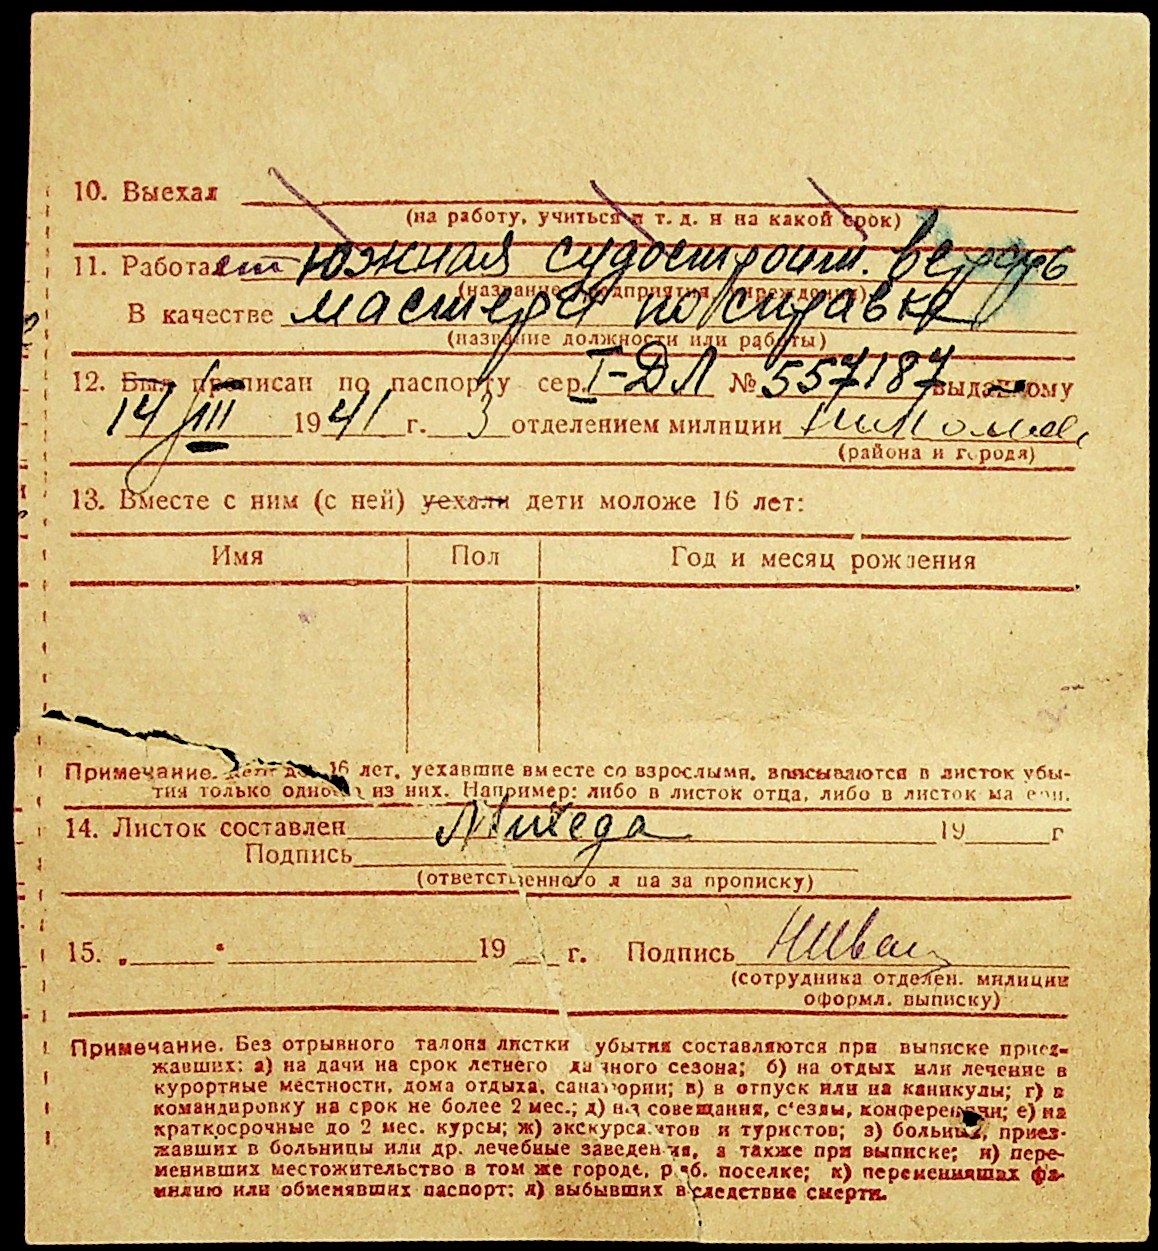 10. Выехал
(на работу, учиться и т. д. и на какой срок)
11. Работает Южная судостроит. верфь
(название предприятия, учреждения)
В качестве мастера по справке
(название должности или работы)
12. Был прописан по паспорту сер. I-ДЛ № 557187 выданному
14/III 1941 г. 3 отделением милиции
(района и города)
13. Вместе с ним (с ней) уехали дети моложе 16 лет:
Имя Пол Год и месяц рождения
Примечание. Дети до 16 лет, уехавшие вместе со взрослыми, вписываются в листок убы-
тия только одного из них. Например: либо в листок отца, либо в листок матери.
14. Листок составлен 19 г
Подпись
(ответственного лица за прописку)
15. 19 г. Подпись
(сотрудника отделен. милиции
оформл. выписку)
Примечание. Без отрывного талона листки убытия составляются при выписке приез-
жавших: а) на дачи на срок летнего дачного сезона; б) на отдых или лечение в
курортные местности, дома отдыха, санатории; в) в отпуск или на каникулы; г) в
командировку на срок не более 2 мес.; д) на совещания, с'езды, конференции; е) на
краткосрочные до 2 мес. курсы; ж) экскурсантов и туристов; з) больных, приез-
жавших в больницы или др. лечебные заведения, а также при выписке; и) пере-
менивших местожительство в том же городе, раб. поселке; к) переменивших фа-
милию или обменявших паспорт; л) выбывших вследствие смерти.